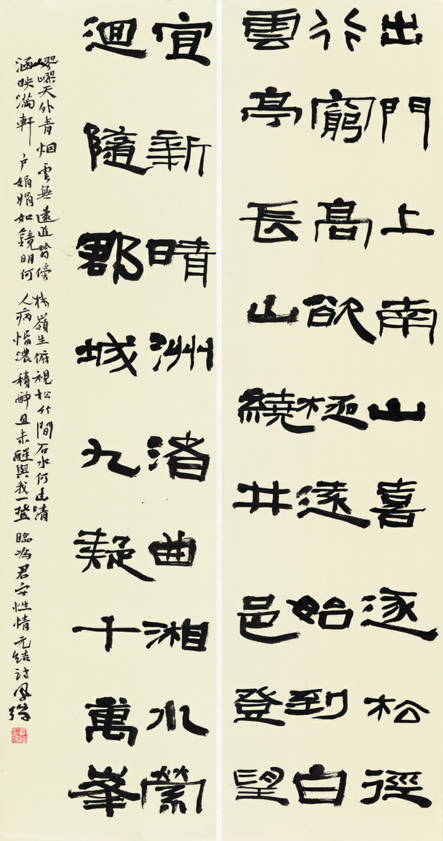 出門上南山喜逐松徑
行窮高欲極遠始到白
雲亭長山繞井邑登望
宜新晴洲渚曲湘水縈
迴隨郡城九疑千萬峯
嵺嵺天外青烟雲無遠近皆傍林嶺生俯視松竹間石水何幽清
涵映滿軒戶娟娟如鏡明何人病惛濃積醉且未醒與我一登臨為君安性情元結詩